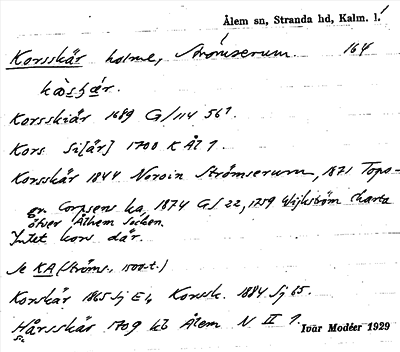 Ålem sn, Stranda hd, Kalm. l.
Korsskär holme, Strömserum. 164
Korsskiär 1689 G/114 56¹.
Kors Si[är] 1700 K Ål 1.
Korsskär 1844 Noroin Strömserum, 1871 Topo-
gr. Corpsens ka, 1874 GS 22, 1759 Wijkström charta
öfver Ålhem socken.
Intet kors där.
Se KA (Ströms., 1500-t.)
Korskär 1865 Sj E 4, Korssk. 1884 Sj 65.
Hårsskär 1709 kb Ålem N II 1.
Ivar Modéer 1929